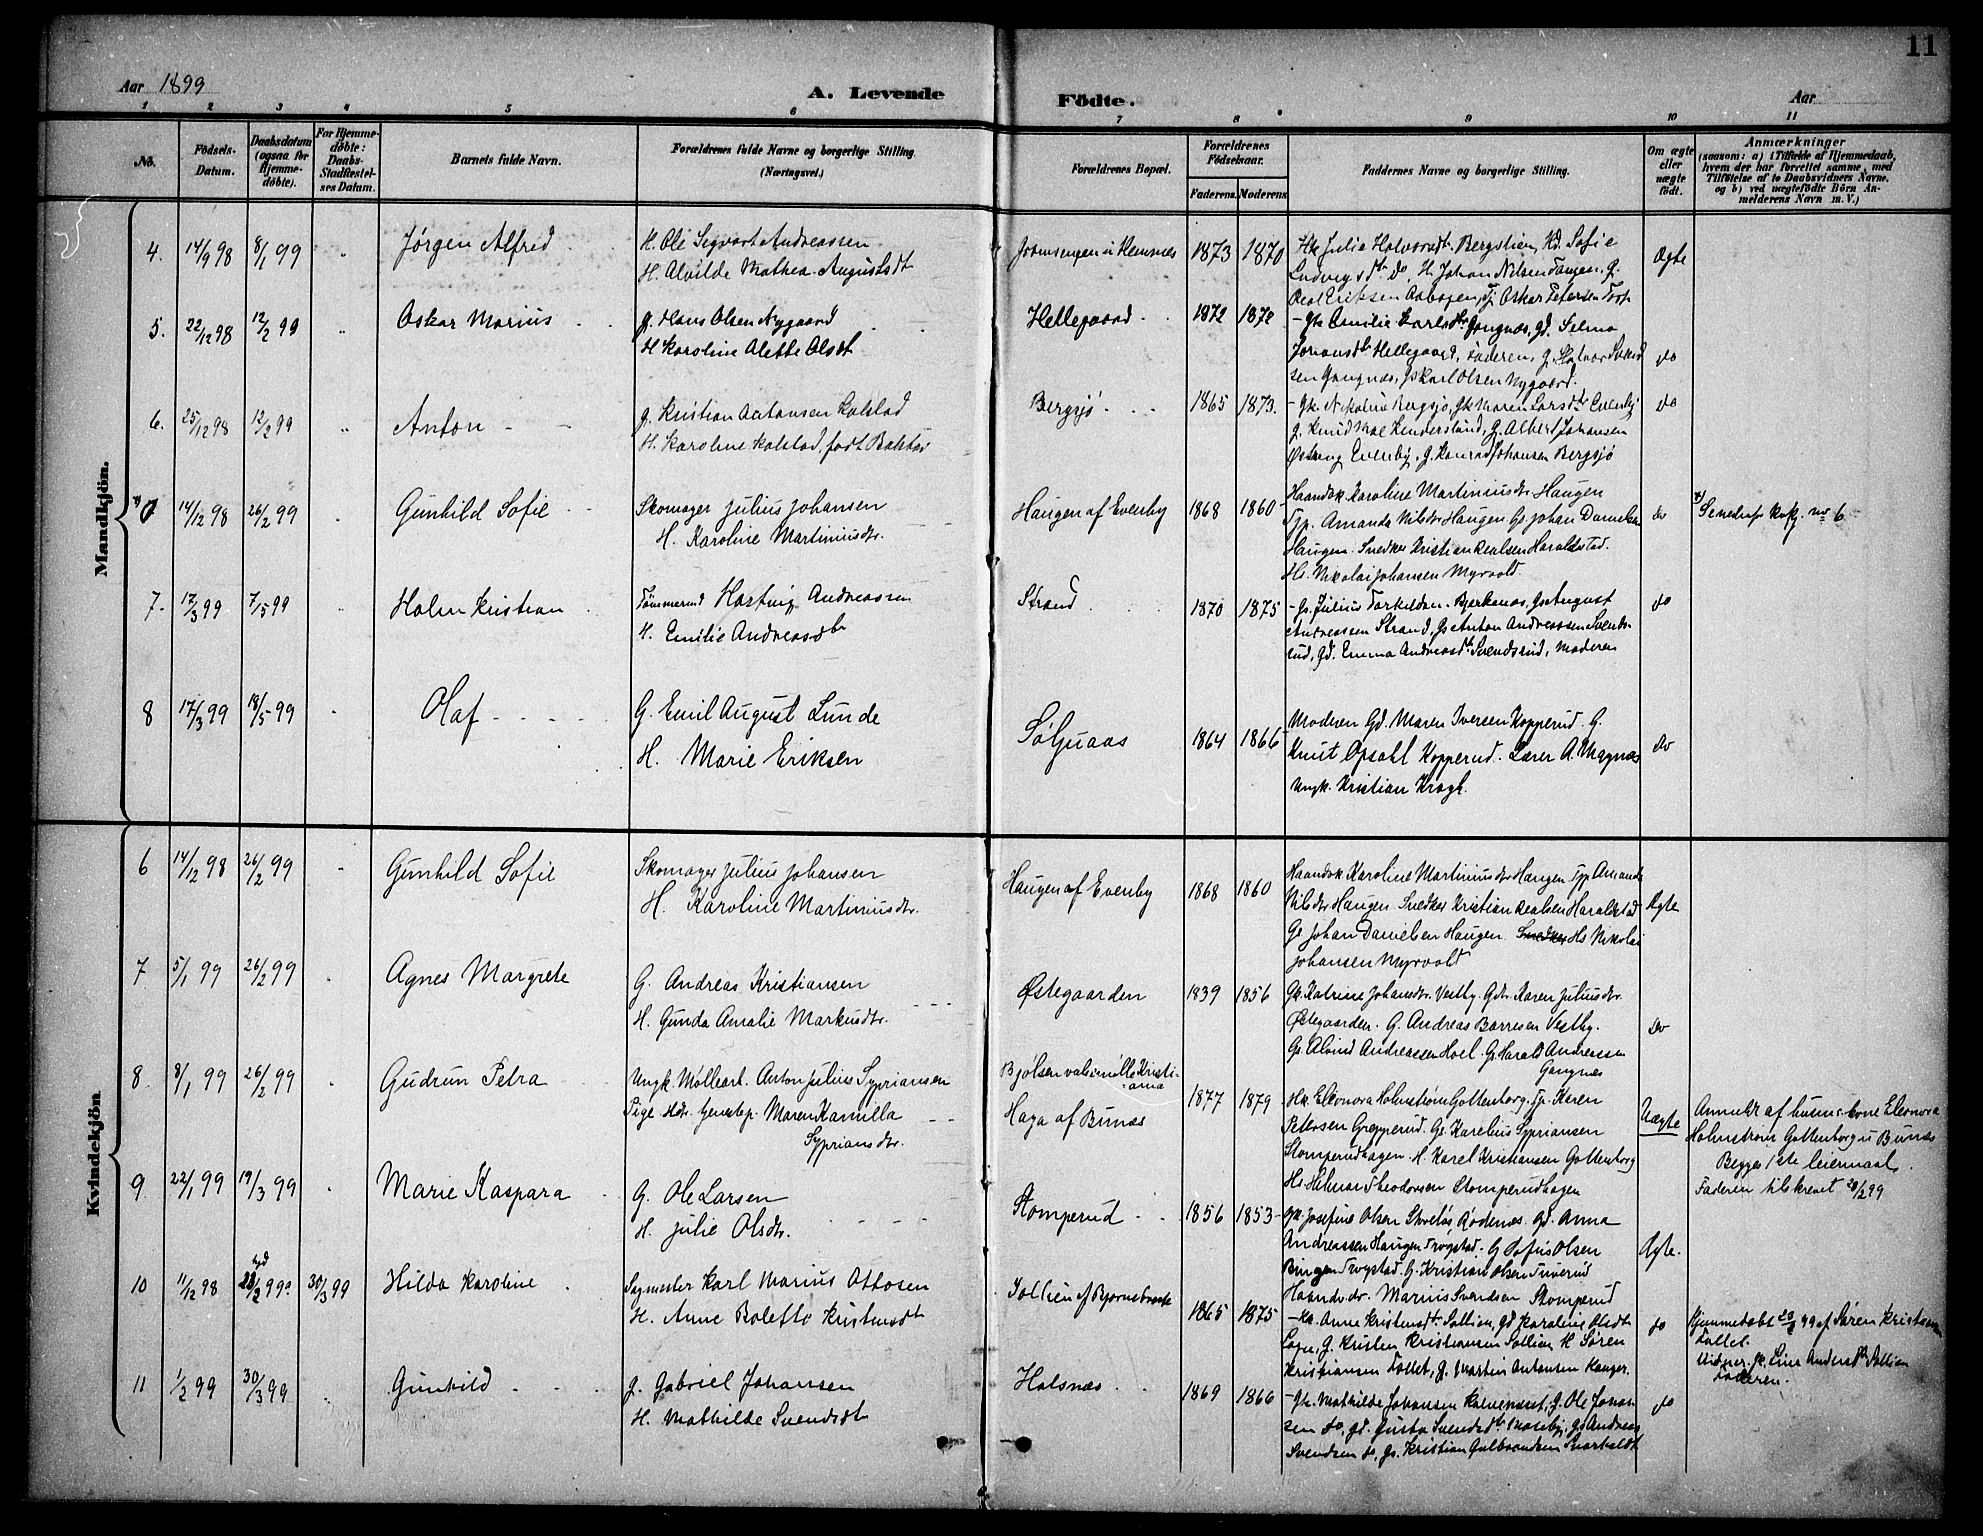 11
Aar 1899
A. Levende
Födte.
Aar
1 2 3 4 5 6 7 8 9 10 11
No.
Födsels-
Datum.
Daabsdatum
(ogsaa for
Hjemme-
döbte).
For Hjemme-
döbte:
Daabs-
Stadfæstel-
ses Datum.
Barnets fulde Navn.
Forældrenes fulde Navne og borgerlige Stilling.
(Næringsvei.)
Forældrenes Bopæl.
Forældrenes
Födselsaar.
Faderens. Moderens.
Faddernes Navne og borgerlige Stilling.
Om ægte
eller
uægte
födt.
Anmærkninger
(saasom: a) i Tilfælde af Hjemmedaab,
hvem der har forrettet samme, med
Tilföielse af to Daabsvidners Navne.
og b) ved uægtefödte Börn An-
melderens Navn m. V.)
Mandkjön.
4. 14/9 98 8/1 99 " Jørgen Alfred
H. Ole Sigvart Andreassen
H. Alvilde Mathea Augustsdt
1873 1870
Hk Julie Halvorsdt. Bergstien, Kd. Sofie
Ludvigsdtr do, H. Johan Nilsen Tangen, G.
Ægte
5. 22/12 98 12/2 99 " Oskar Marius
G. Hans Olsen Nygaard
H. Karoline Alette Olsdt
Hellegaard
1872 1872
- Gk Emilie Karlsdtr Gangnæs, Gd. Selma
Johansdtr Hellegaard, Faderen, G.
sen Gangnæs, Gs Karl Olsen Nygaard.
do
6. 25/12 98 12/2 99 " Anton
G. Kristian Antonsen Kolstad
H. Karoline Kolstad, født Bakstad
Bergsjø
1865 1873.
- Gk. Nikoline Bergsjø, Gk Maren Larsdtr Evenby
G. Albert Johansen
Evenby, G. Konrad Johansen Bergsjø
do
x) 0 14/12 98 26/2 99 " Gunhild Sofie
Skomager Julius Johansen
H. Karoline Martiniusdtr.
Haugen af Evenby
1868 1860
Haandvk. Karoline Martiniusdtr Haugen
Tjp. Amanda Nilsdtr Haugen Gs Johan Danielsen
Haugen. Snedker Kristian Realsen Haraldstad.
Hs. Nikolai Johansen Myrvold.
do
x) Se nedenf. kvkj. no 6
7. 17/3 99 7/5 99 " Halm Kristian
Tømmermd Hartvig Andreassen
H. Emilie Andreasdtr
Strand
1870 1875
- Gs. Julius Torkildsen. Bjerkenæs, Gs August
Andreassen Strand, Gs Anton Andreassen Svends-
rud, Gd. Emma Andreasdtr Svendsrud, Moderen
do
8 17/3 99 18/5 99 " Olaf
G. Emil August Lunde
H. Marie Eriksen
Søljuaas
1864 1866
Moderen Gd. Maren Iversen Kopperud. G.
Knut Opsahl Kopperud. Lærer A. Magnæs
Ungk. Kristian Krogh.
do
Kvindekjön
6 14/12 98 26/2 99 " Gunhild Sofie
Skomager Julius Johansen
H. Karoline Martiniusdtr.
Haugen af Evenby
1868 1860
Haandvk Karoline Martiniusdtr Haugen Tjp Amanda
Nilsdtr Haugen Snedker Kristian Realsen Haraldstad
Gs Johan Danielsen Haugen Snedker Hs Nikolai
Johansen Myrvold
Ægte
7 5/1 99 26/2 99 " Agnes Margrete
G. Andreas Kristiansen
H. Gunda Amalie Markusdtr.
Østegaarden
1839 1856
Gk. Katrine Johansdtr. Vestby. Gdtr. Karen Juliusdtr.
Østegaarden. G. Andreas Borresen Vestby.
Gs. Alvind Andreassen Hoel. Gs Harald Andreassen
Gangnæs
do
8. 8/1 99 26/2 99 " Gudrun Petra
Ungk. Møllearb. Anton Julius Sypriansen
Pige. Maren Kamilla
Sypriansdtr.
Bjølsen valsemølle Kristi-
ania
Haga af Bunæs
1877 1879
Hk. Eleonora Holmstrøm Gottenborg. Tp. Karen
Petersen Grepperud. Gs. Karelius Syprianssen
Stomperudhagen. H. Karel Kristiansen Gottenborg
Hs. Hilmar Theodorsen Stomperudhagen
Uægte
Anmeldt af husm. kone Eleonora
Holmstrøm Gottenborg u Bunæs
Begges 1ste leiermaal.
Faderen tilskrevet 28/2 99
9 22/1 99 19/3 99 " Marie Kaspara
G. Ole Larsen
H. Julie Olsdtr.
Stomperud
1856 1853
Gk. Josefine Olsen Rødenæs. Gd. Anna
Andreassen Haugen Trøgstad. G Sofus Olsen
Bingen Trøgstad. G. Kristian Olsen
Marius Svendsen Stomperud
Ægte.
10 11/12 98 30/3 99 Hilda Karoline
Sagmester Karl Marius Ottosen
H. Anne Bolette Kristensdt
1865 1875
- Ka. Anne Kristensdtr Sollien, Gd Karoline Olsdt
G. Kristen Kristiansen Sollien, H Søren
Kristiansen Tollet, G. Martin Antonsen
do
Hjemmedøbt af Søren Kristiansen
Tollet.
Vidner. Gk. Line Andersdtr Sollien
Faderen.
11 1/2 99 30/3 99 " Gunhild
G. Gabriel Johansen
H. Mathilde Svendsdt
Holsnæs
1869 1866
- Gk. Mathilde Johansen G. Ole Johan-
sen do, Gd. Gusta Svendsdtr Moseby, Gs Andreas
Svendsen do, Gs. Kristian Gulbrandsen
do